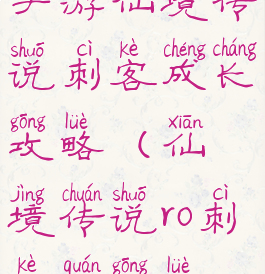 手游仙境传
shuō cì kè chéng cháng
说刺客成长
gōng lüè xiān
攻略(仙
jìng chuán shuō cì
境传说ro刺
kè quán gōng lüè